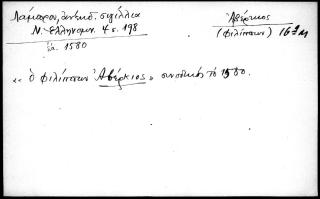 Λάμπρου, ἀνέκδ. σιγίλλια
Ν. Ἑλληνομν. 4 σ. 198
ἔα. 1580
Ἀβέρκιος
(Φιλίππων) 16ος
« ὁ Φιλίππων Ἀβέρκιος » συνοδικὸς τὸ 1580.